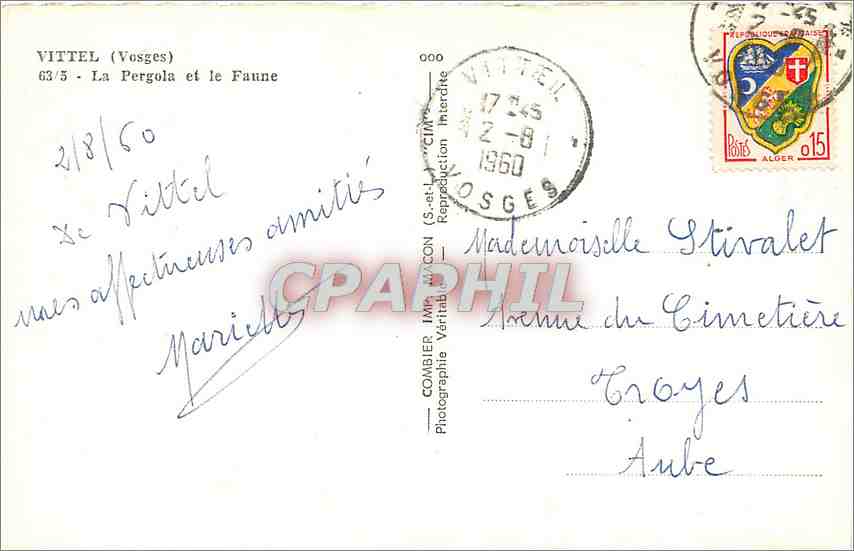 VITTEL (Vosges)
63/5 - La Pergola et le Faune
2/8/60
De Vittel
mes affectueuses amitiés
Marielle
COMBIER IMP. MACON (S.-et-L.) "CIM"
Photographie Véritable - Reproduction Interdite
VITTEL
17 H 45
2 - 8
1960
VOSGES
REPUBLIQUE FRANÇAISE
POSTES
ALGER
0,15
45
2
VO
Mademoiselle Stivalet
Avenue du Cimetière
Troyes
Aube
CPAPHIL